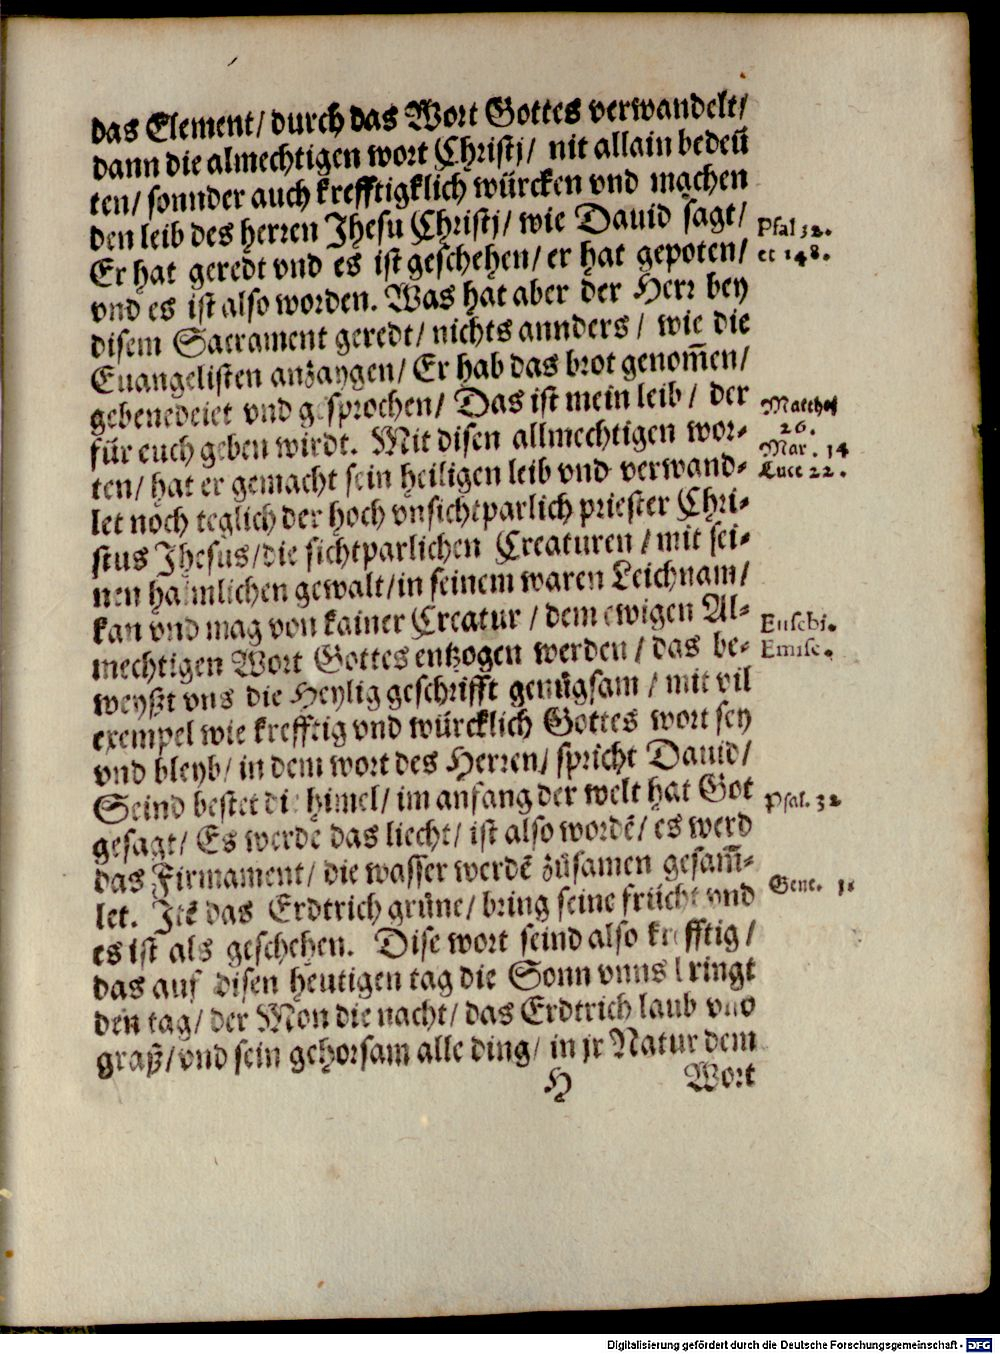 das Element/ durch das Wort Gottes verwandelt/
dann die almechtigen wort Christj/ nit allain bedeü
ten/ sonnder auch krefftigklich würcken vnd machen
den leib des herren Jhesu Christj/ wie Dauid sagt/
Psal 32.
Er hat geredt vnd es ist geschehen/ er hat gepoten/
et 148.
vnd es ist also worden. Was hat aber der Herr bey
disem Sacrament geredt/ nichts annders/ wie die
Euangelisten anzaygen/ Er hab das brot genom̃en/
gebenedeiet vnd gesprochen/ Das ist mein leib/ der
Matthej
26.
für euch geben wirdt. Mit disen allmechtigen wor-
Mar. 14
ten/ hat er gemacht sein heiligen leib vnd verwand-
Luce 22.
let noch teglich der hoch vnsichtparlich priester Chri-
stus Jhesus/die sichtparlichen Creaturen/mit sei-
nen haimlichen gewalt/in seinem waren Leichnam/
kan vnd mag von kainer Creatur/ dem ewigen Al-
Eusebi.
mechtigen Wort Gottes entzogen werden/ das be-
Emise.
weyßt vns die Heylig geschrifft genügsam/ mit vil
exempel wie krefftig vnd würcklich Gottes wort sey
vnd bleyb/ in dem wort des Herren/ spricht Dauid/
Seind bestet die himel/ im anfang der welt hat Got
Psal. 32
gesagt/ Es werde das liecht/ ist also wordē/ es werd
das Firmament/ die wasser werdē zůsamen gesam̃-
let. Jtē das Erdtrich grüne/ bring seine frücht vnd
Gene. 1.
es ist als geschehen. Dise wort seind also krefftig/
das auf disen heutigen tag die Sonn vnns bringt
den tag/ der Mon die nacht/ das Erdtrich laub vnd
graß/ vnd sein gehorsam alle ding/ in jr Natur dem
H Wort
Digitalisierung gefördert durch die Deutsche Forschungsgemeinschaft - DFG